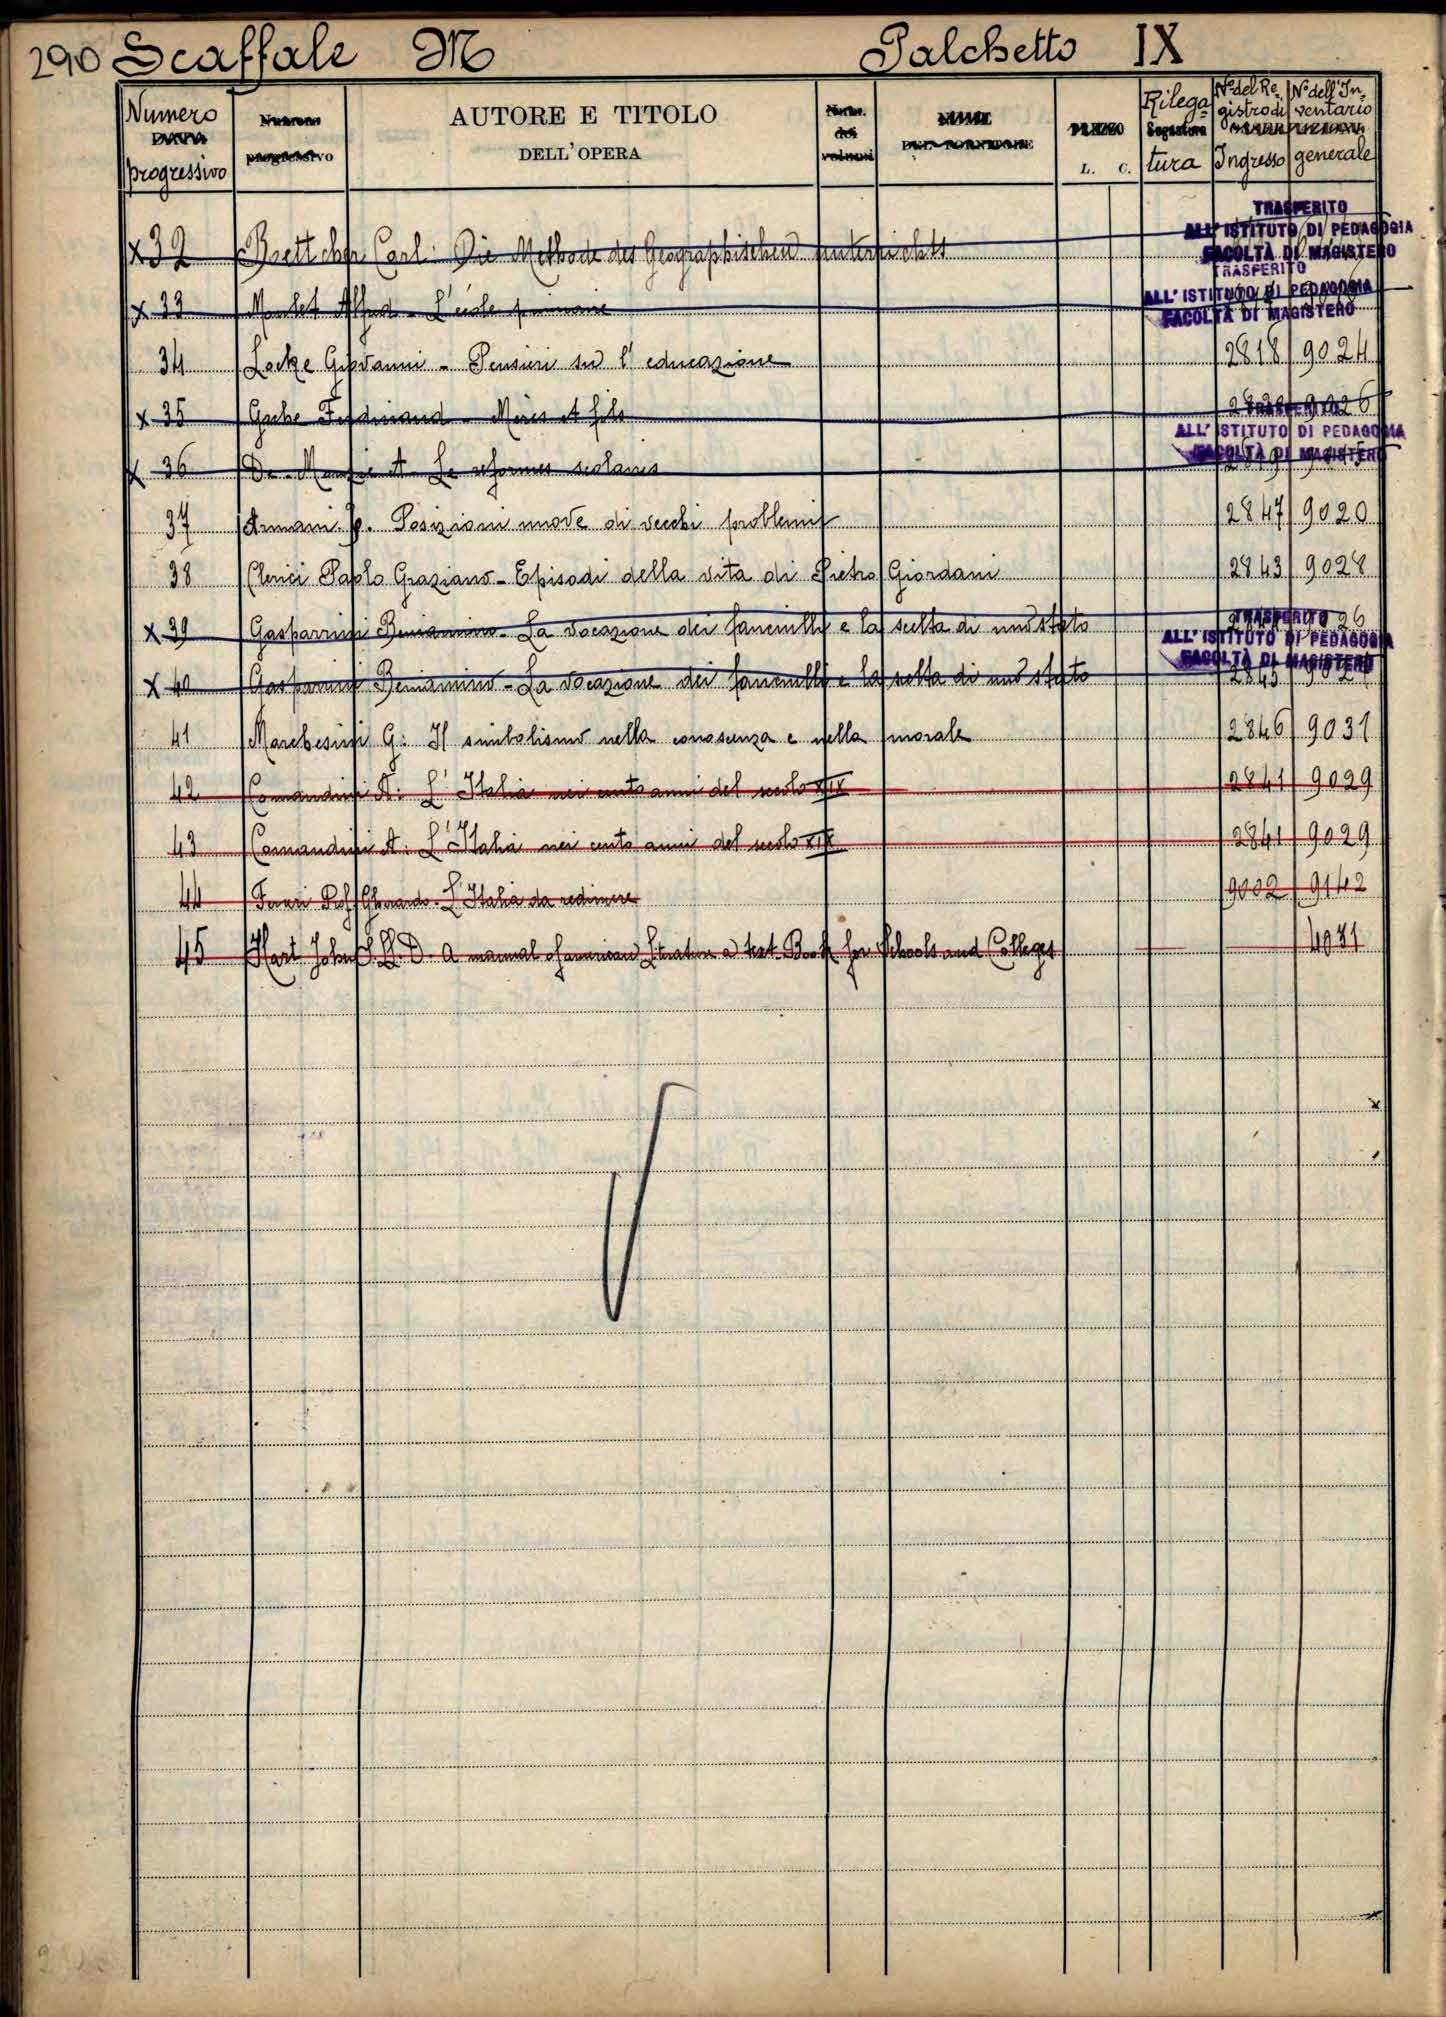 290 Scaffale M Palchetto IX
Numero progressivo AUTORE E TITOLO DELL'OPERA L. C. Rilegatura Nº del Registro di Ingresso Nº dell'Inventario generale
TRASFERITO
ALL'ISTITUTO DI PEDAGOGIA
FACOLTÀ DI MAGISTERO
x 32 Boettcher Carl: Die Methode des Geographischen unterrichts
TRASFERITO
ALL'ISTITUTO DI PEDAGOGIA
FACOLTÀ DI MAGISTERO
x 33 Alfred - L'école primaire
34 Locke Giovanni - Pensieri su l'educazione 2818 9024
x 35 Gache Ferdinand - Mères et fils 9026
TRASFERITO
ALL'ISTITUTO DI PEDAGOGIA
FACOLTÀ DI MAGISTERO
x 36 De Monzie A - Le reformes scolaires
37 Armani. Posizioni nuove di vecchi problemi 2847 9020
38 Clerici Paolo Graziano - Episodi della vita di Pietro Giordani 2843 9028
x 39 Gasparrini Beniamino - La vocazione dei fanciulli e la scelta di uno stato
TRASFERITO
ALL'ISTITUTO DI PEDAGOGIA
FACOLTÀ DI MAGISTERO
x 40 Gasparrini Beniamino - La vocazione dei fanciulli e la scelta di uno stato 2845 9027
41 Marchesini G: Il simbolismo nella conoscenza e nella morale 2846 9031
42 Comandini A: L'Italia nei cento anni del secolo XIX 2841 9029
43 Comandini A: L'Italia nei cento anni del secolo XIX 2841 9029
44 Ferrari Prof Gherardo - L'Italia da redimere 9002 9142
45 Hart John S. LL. D. A manual of american Literature a text Book for Schools and Colleges 4031